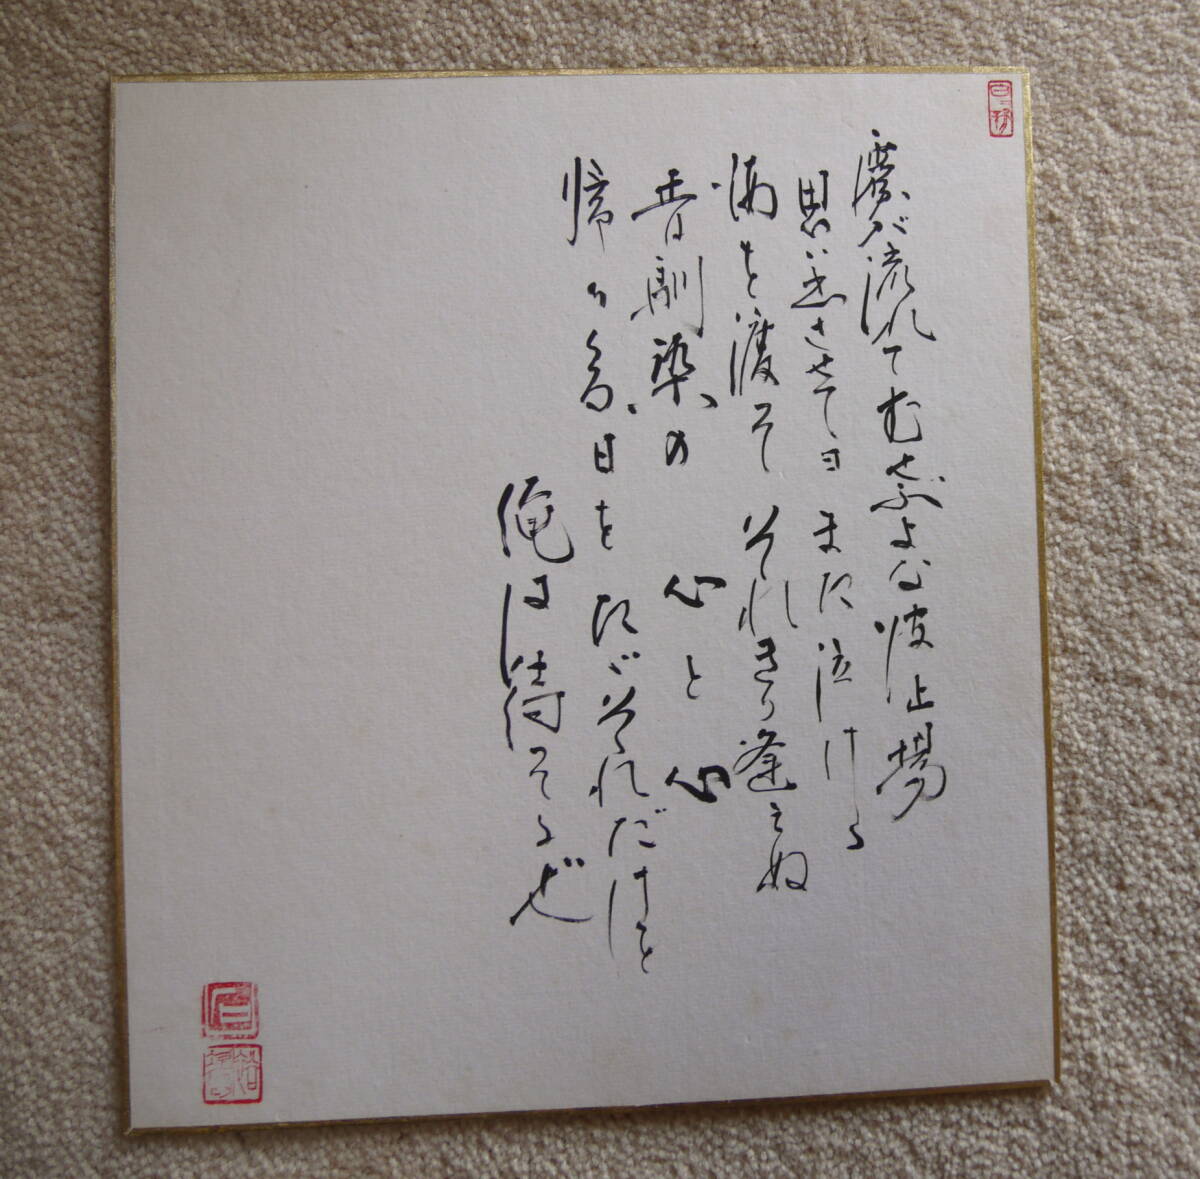 霧が流れてむせぶよな波止場
思い出させてヨ また泣ける
海を渡って それきり逢えぬ
昔馴染の 心と心
帰りくる日を ただそれだけを
俺は待ってるぜ